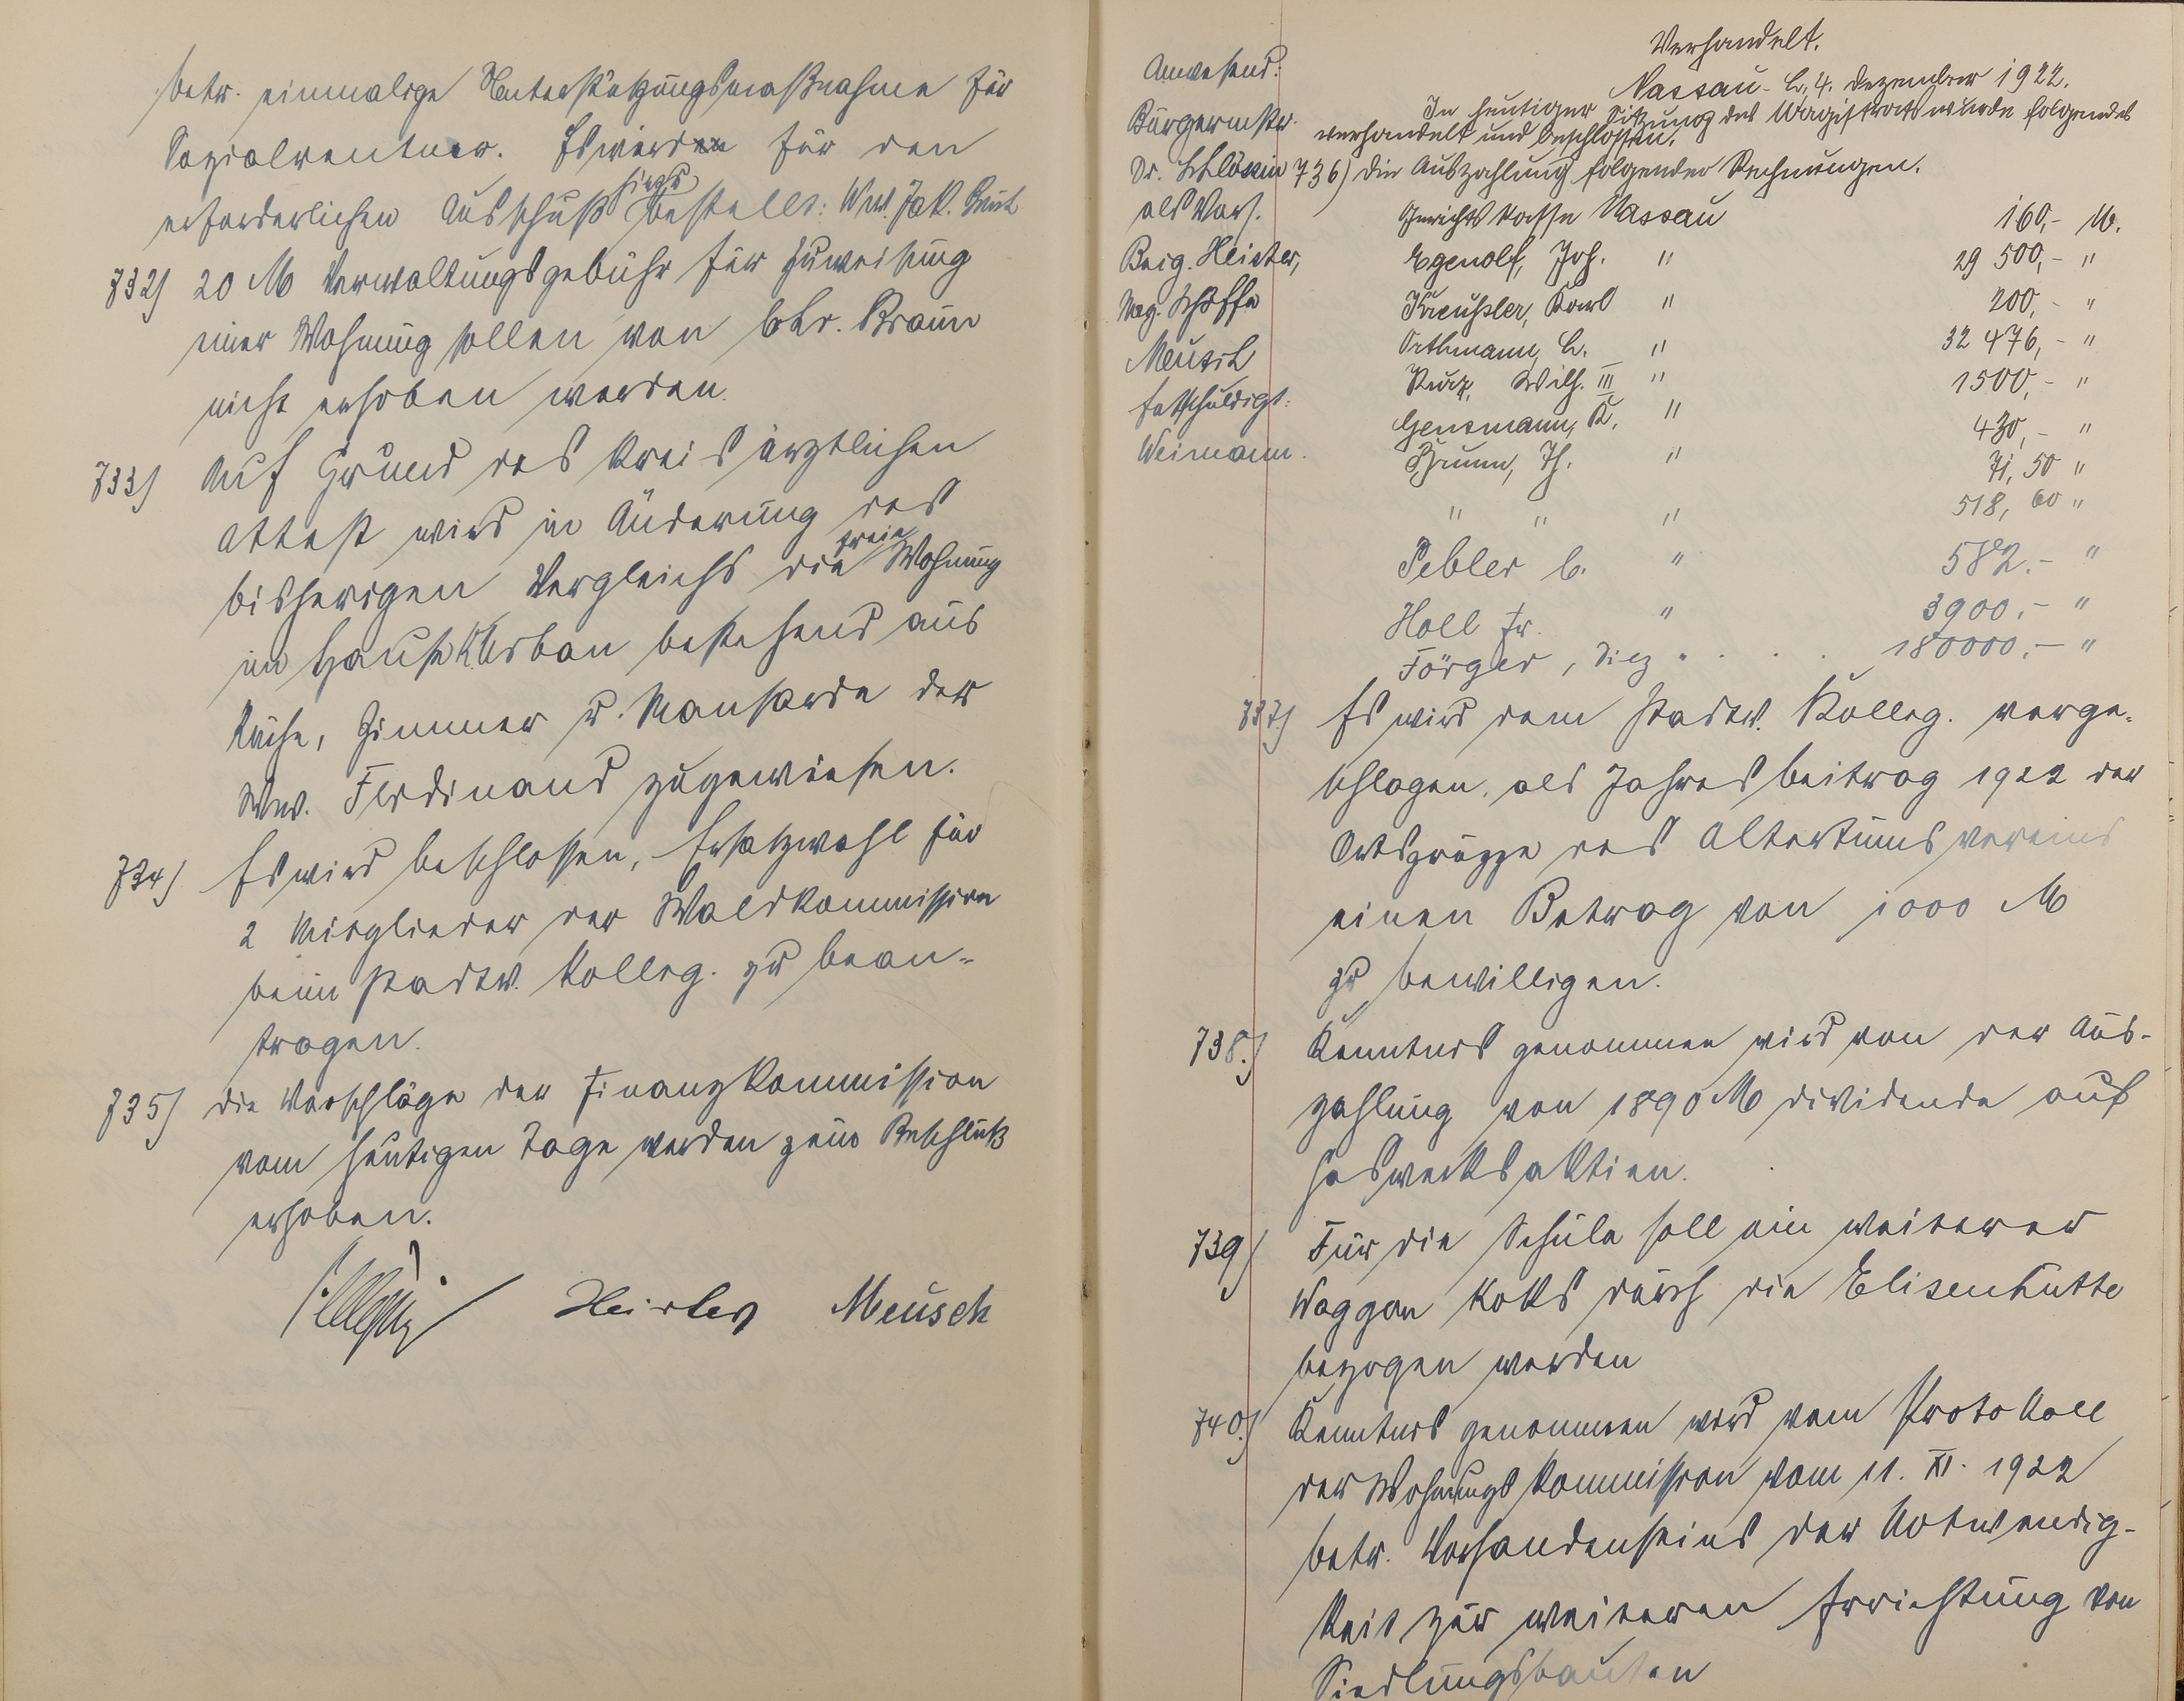 betr. einmalige Unterstützungsmaßnahme für
Sozialrentner. Es wird für den
erforderlichen Ausschuß hierzu bestellt: Ww. Jak.
732) 20 M Verwaltungsgebühr für Zuweisung
einer Wohnung sollen von Chr. Braun
nicht erhoben werden.
733) Auf Grund des Kreisärztlichen
Attest wird in Änderung des
bisherigen Vergleichs die freie Wohnung
im Hause Urban bestehend aus
Küche, Zimmer u. Mansarde der
Ww. Ferdinand zugewiesen.
734) Es wird beschlossen, Ersatzwahl für
2 Mitglieder der Waldkommission
beim Stadtv. Kolleg. zu bean-
tragen.
735) Die Vorschläge der Finanzkommission
vom heutigen Tage werden zum Beschluß
erhoben.
Heister Meusch
Anwesend:
Bürgermstr.
Dr.
als Vors.
Beig. Heister,
Mag. Schöffe
Meusch
Entschuldigt:
Weimann.
Verhandelt.
Nassau-L., 4. Dezember 1922.
In heutiger Sitzung des Magistrats wurde folgendes
verhandelt und beschlossen.
736) Die Auszahlung folgender Rechnungen.
Gerichtskasse Nassau 160,- M.
Egenolf, Joh. " 29 500,- "
Kreußler, Karl " 200,- "
Orthmann, L. " 32 476,- "
Kurz, Wilh. III " 1500,- "
Gensmann, K. " 430,- "
Brunn, Th. " 71,50 "
" " " 518,60 "
Pebler C. " 582.- "
Holl Fr. " 3900.- "
Förger, Diez " . . . 180000.- "
737.) Es wird dem Stadtv. Kolleg. vorge-
schlagen, als Jahresbeitrag 1922 der
Ortsgruppe des Altertumsvereins
einen Betrag von 1000 M
zu bewilligen.
738.) Kenntnis genommen wird von der Aus-
zahlung von 1890 M Dividende auf
Gaswerksaktien.
739) Für die Schule soll ein weiterer
Waggon Koks durch die Elisenhütte
bezogen werden
740.) Kenntnis genommen wird vom Protokoll
der Wohnungskommission vom 11. XI. 1922
betr. Vorhandenseins der Notwendig-
keit zur weiteren Errichtung von
Siedlungsbauten